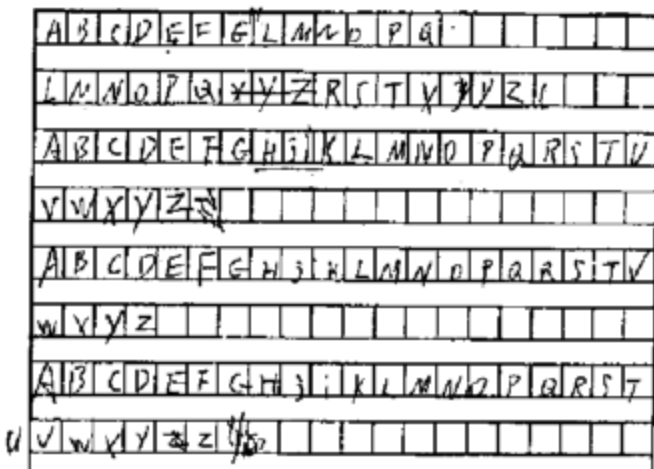 A B C D E F G L M N O P Q
L M N O P Q X Y Z R S T X Y Z
A B C D E F G H j i K L M N O P Q R S T U
V W X Y Z
A B C D E F G H j K L M N O P Q R S T V
W X Y Z
A B C D E F G H j i K L M N O P Q R S T
U V W X Y Z Z